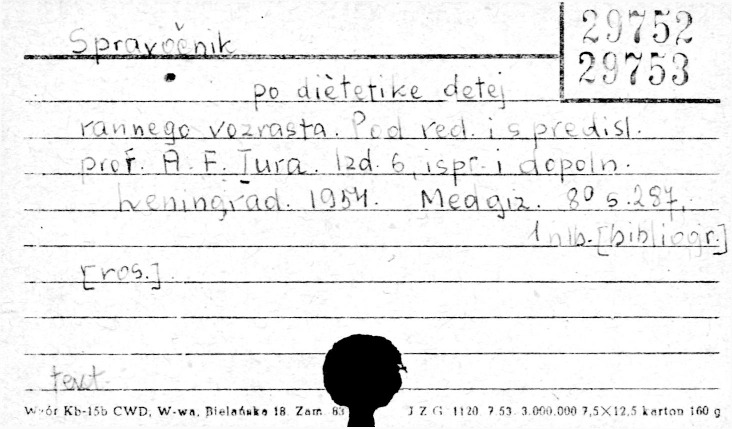 29752
29753
Spravočnik
po diètetike detej
rannego vozrasta. Pod red. i s predisl.
prof. A. F. Tura. Izd. 6, ispr. i dopoln.
Leningrad. 1954. Medgiz. 8º s. 287,
1 nlb. [bibliogr.]
[ros.]
Wzór Kb-15b CWD, W-wa, Bielańska 18. Zam. 83
J Z G 1120 7 53. 3.000.000 7,5×12,5 karton 160 g